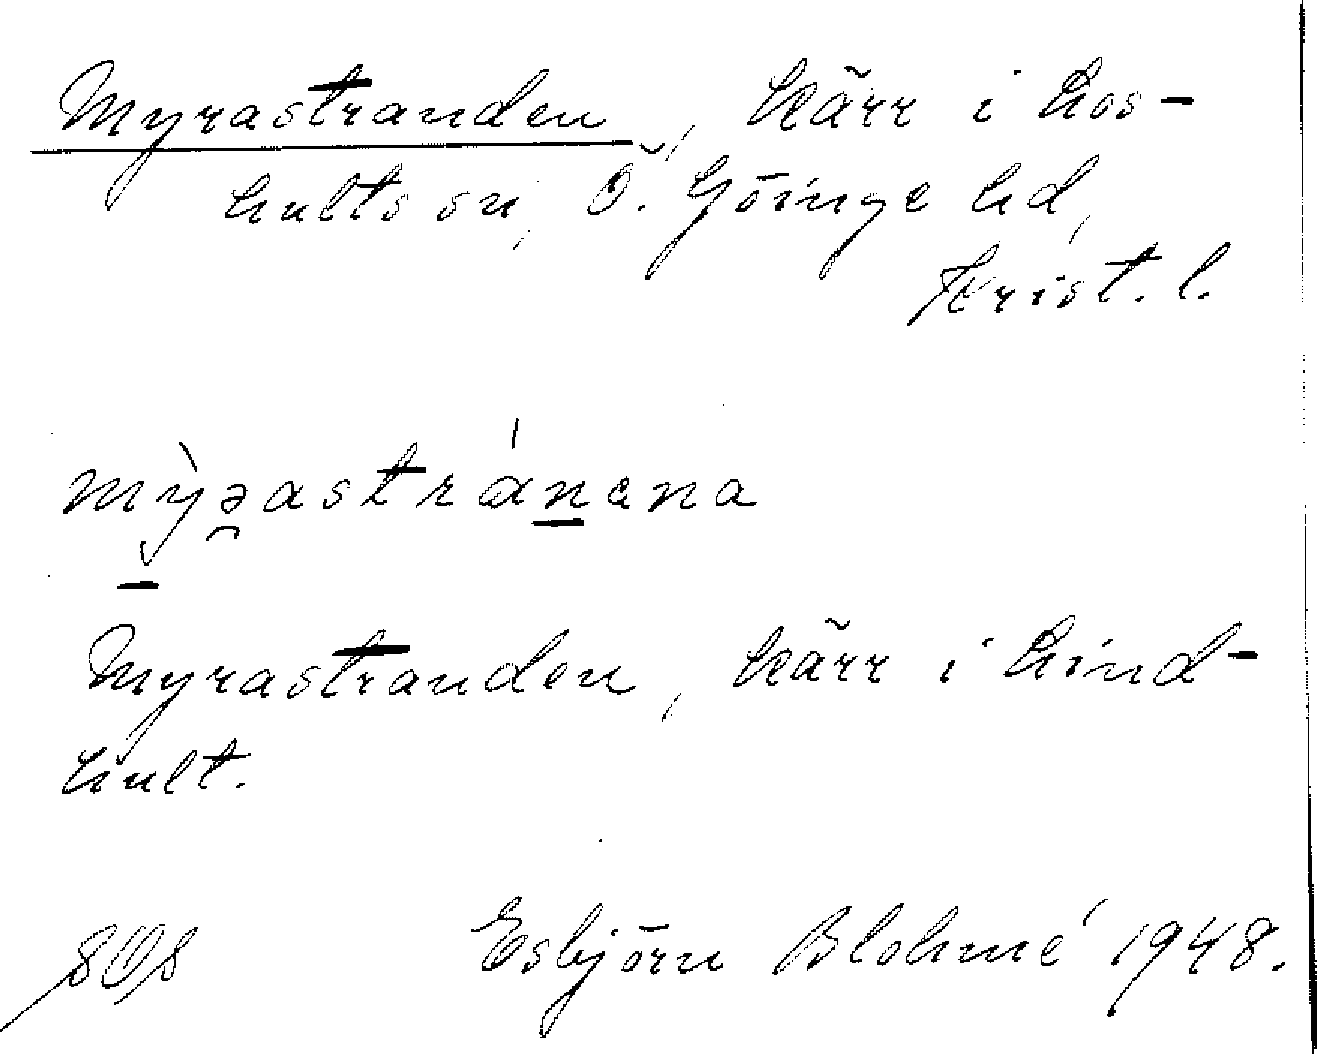 Myrastranden, kärr i Hos-
hults sn, Ö. Göinge hd,
Krist. l.
Myrastranden, kärr i Hind-
hult.
Esbjörn Blohmé 1948.